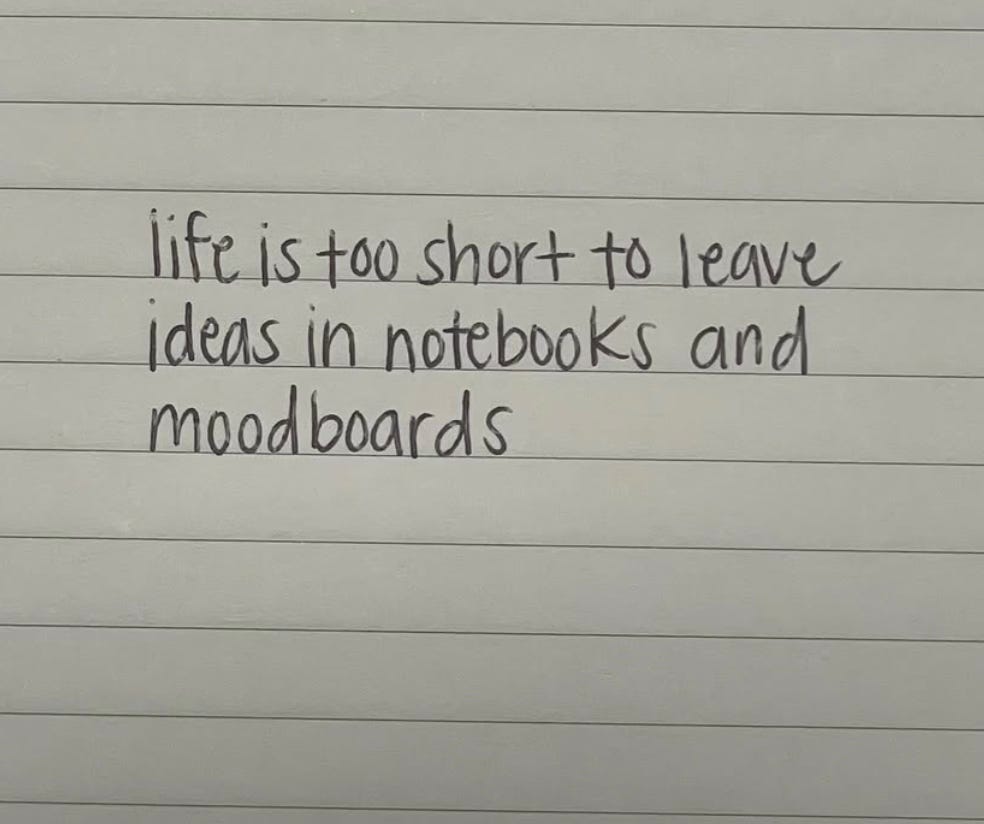 life is too short to leave
ideas in notebooks and
moodboards